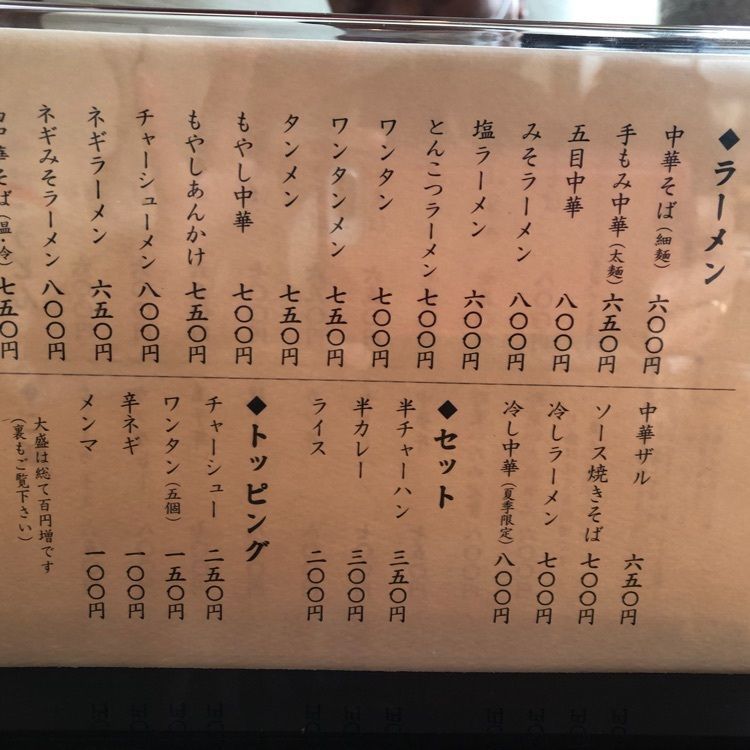 ◆ラーメン
中華そば(細麺) 六〇〇円
手もみ中華(太麺) 六五〇円
五目中華 八〇〇円
みそラーメン 八〇〇円
塩ラーメン 六〇〇円
とんこつラーメン 七〇〇円
ワンタン 七〇〇円
ワンタンメン 七五〇円
タンメン 七五〇円
もやし中華 七〇〇円
もやしあんかけ 七五〇円
チャーシューメン 八〇〇円
ネギラーメン 六五〇円
ネギみそラーメン 八〇〇円
中華そば(温・冷) 七五〇円
中華ザル 六五〇円
ソース焼きそば 七〇〇円
冷しラーメン 七〇〇円
冷し中華(夏季限定) 八〇〇円
◆セット
半チャーハン 三五〇円
半カレー 三〇〇円
ライス 二〇〇円
◆トッピング
チャーシュー 二五〇円
ワンタン(五個) 一五〇円
辛ネギ 一〇〇円
メンマ 一〇〇円
大盛は総て百円増です
(裏もご覧下さい)